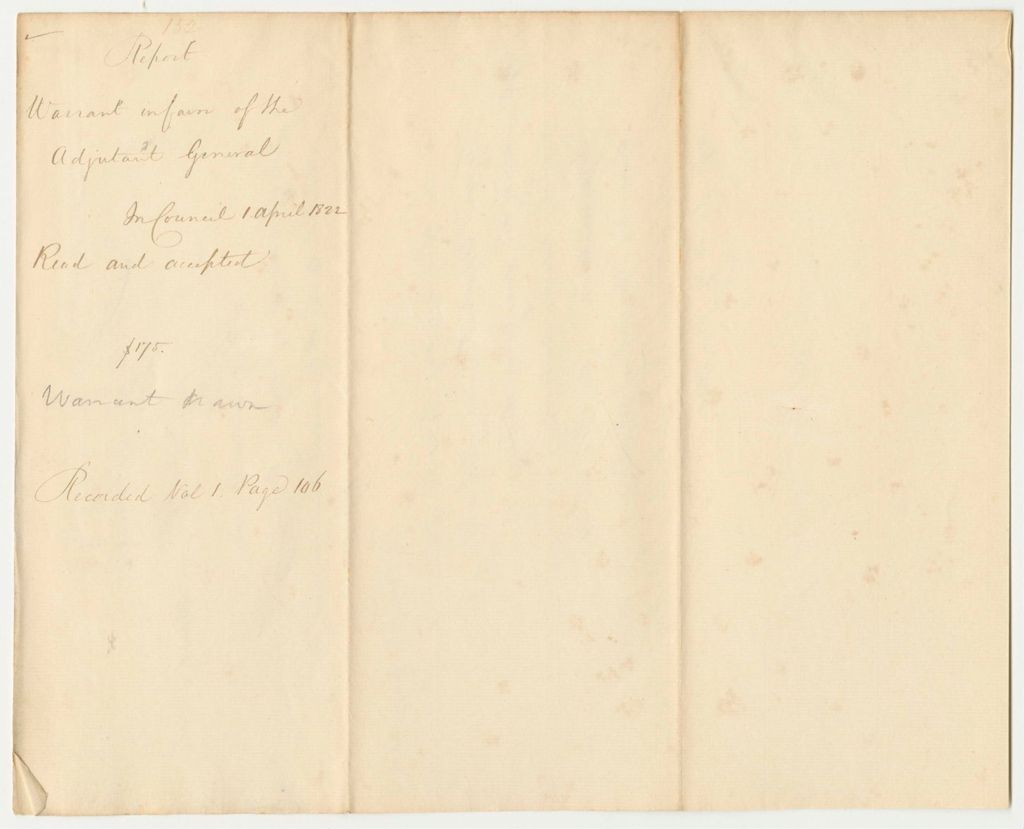 Report
Warrant in favor of the
Adjutant General
In Council 1 April 1822
Read and accepted
$175.
Warrant drawn
Recorded Vol 1. Page 106